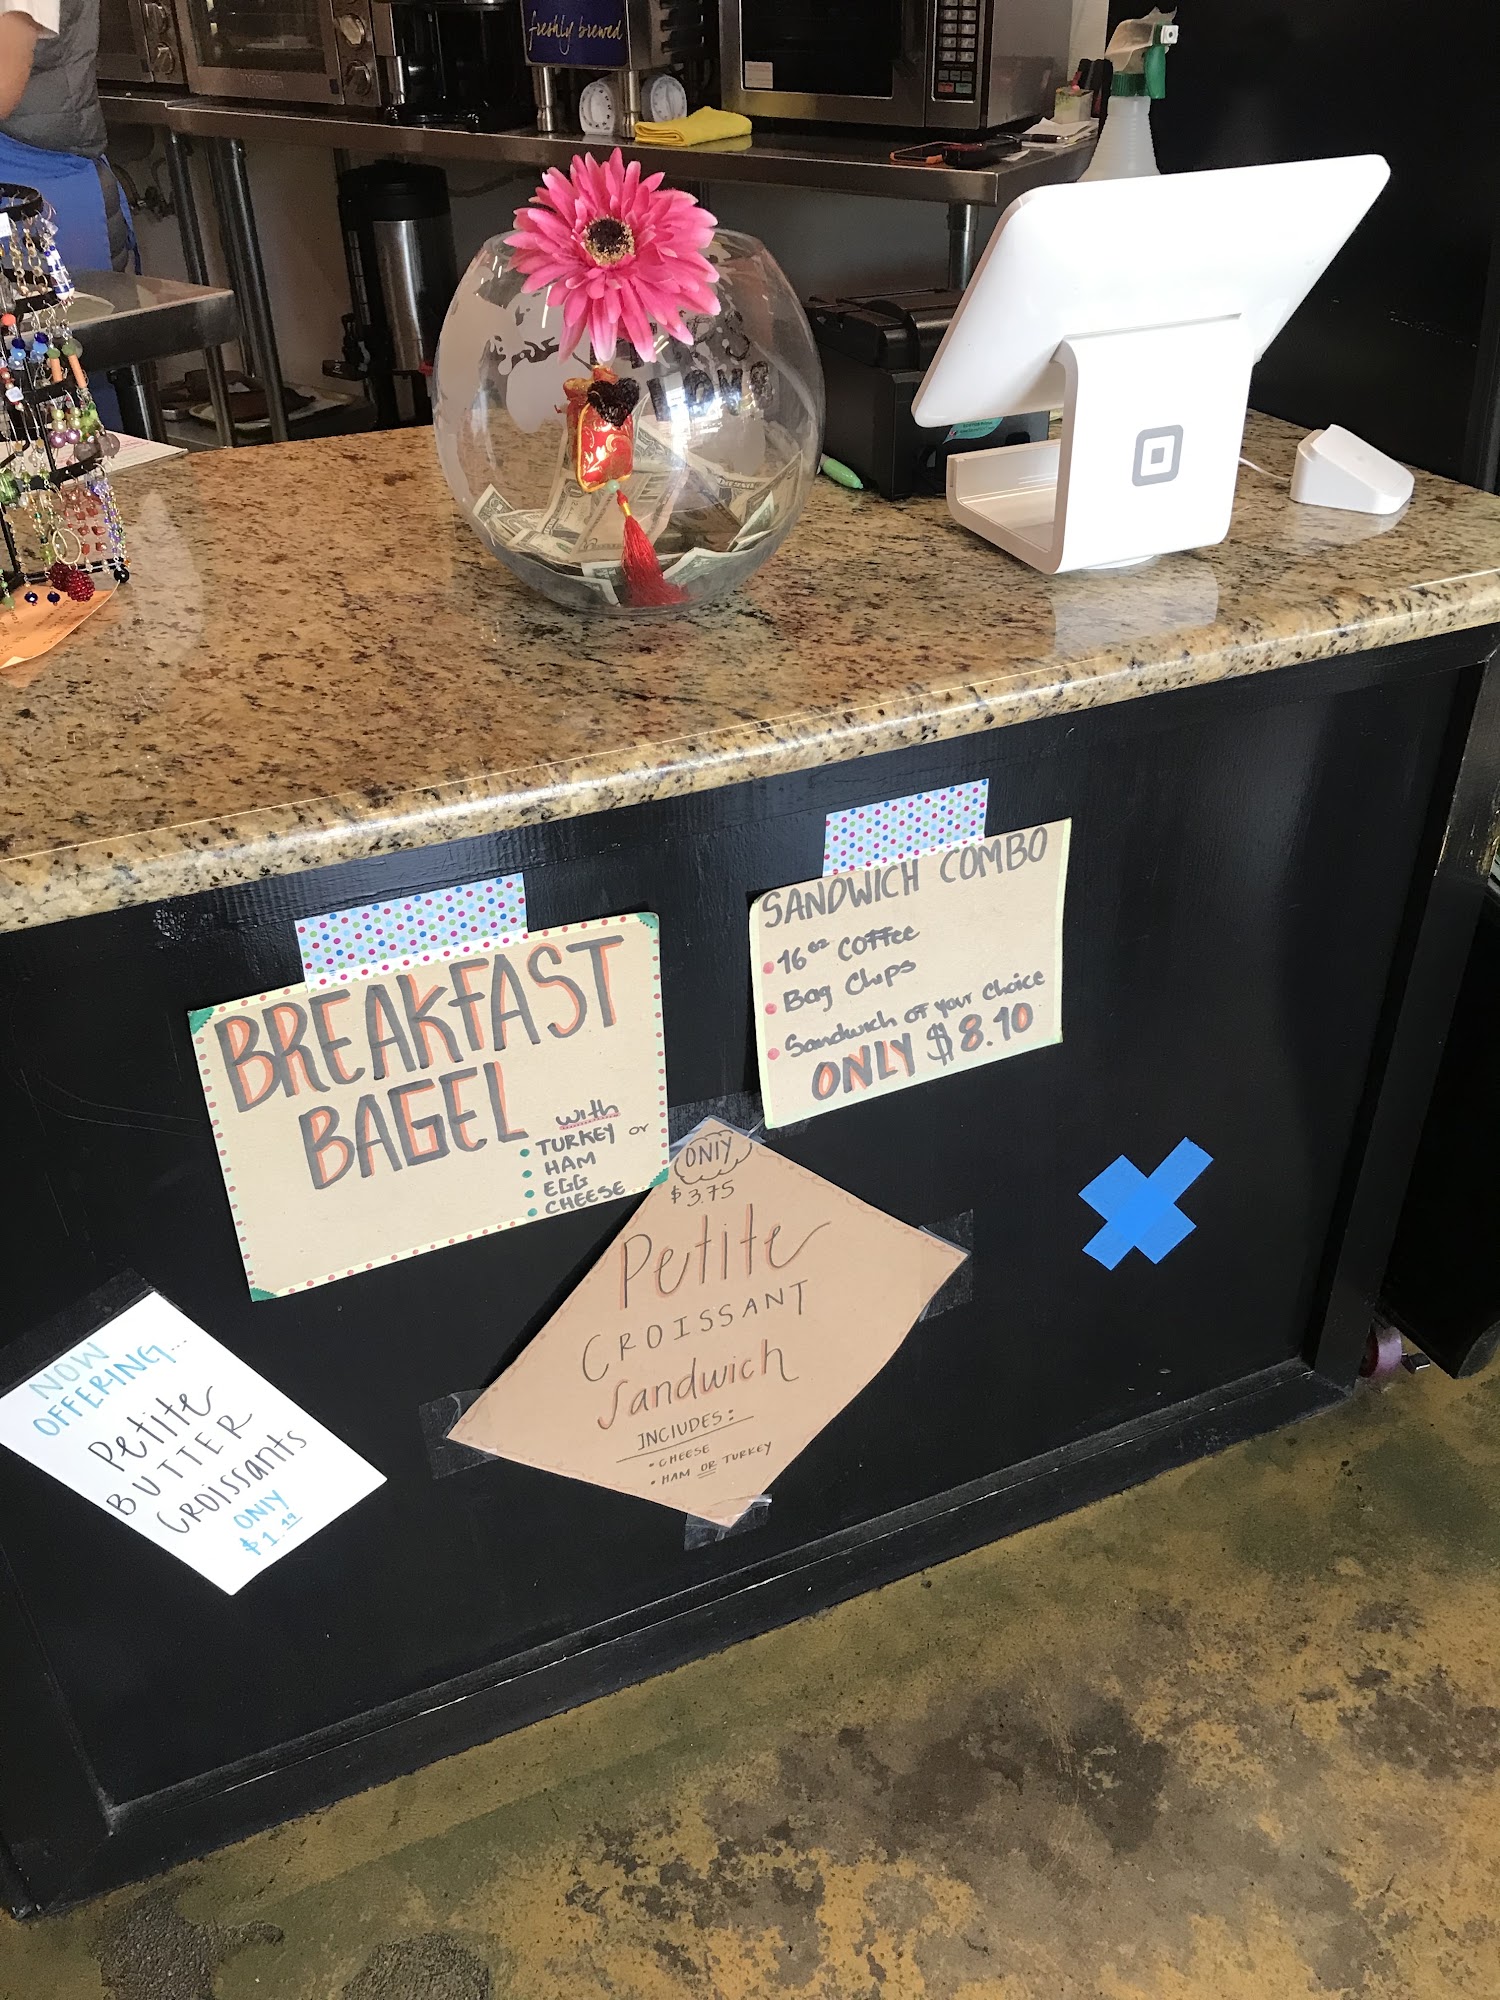 freshly brewed
BREAKFAST
BAGEL
with
TURKEY or
HAM
EGG
CHEESE
SANDWICH COMBO
16oz COFFee
Bag Chips
Sandwich of your choice
ONLY $8.40
ONLY
$3.75
Petite
CROISSANT
Sandwich
INCLUDES:
CHEESE
HAM OR TURKEY
NOW
OFFERING...
Petite
BUTTER
CROISSANTS
ONLY
$1.49